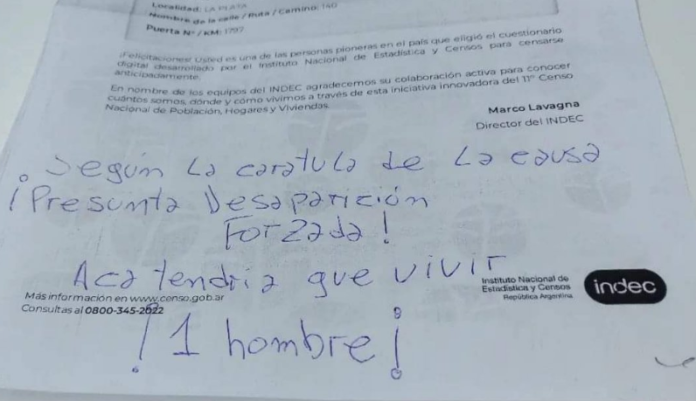 Localidad: LA PLATA
Nombre de la calle / Ruta / Camino: 140
Puerta N° / KM: 1797
¡Felicitaciones! Usted es una de las personas pioneras en el país que eligió el cuestionario
digital desarrollado por el Instituto Nacional de Estadística y Censos para censarse
anticipadamente.
En nombre de los equipos del INDEC agradecemos su colaboración activa para conocer
cuántos somos, dónde y cómo vivimos a través de esta iniciativa innovadora del 11° Censo
Nacional de Población, Hogares y Viviendas.
Marco Lavagna
Director del INDEC
Según La caratula de La causa
¡Presunta Desaparición
Forzada!
Aca tendria que vivir
Más información en www.censo.gob.ar
Consultas al 0800-345-2022
Instituto Nacional de
Estadística y Censos
República Argentina
indec
¡1 hombre!